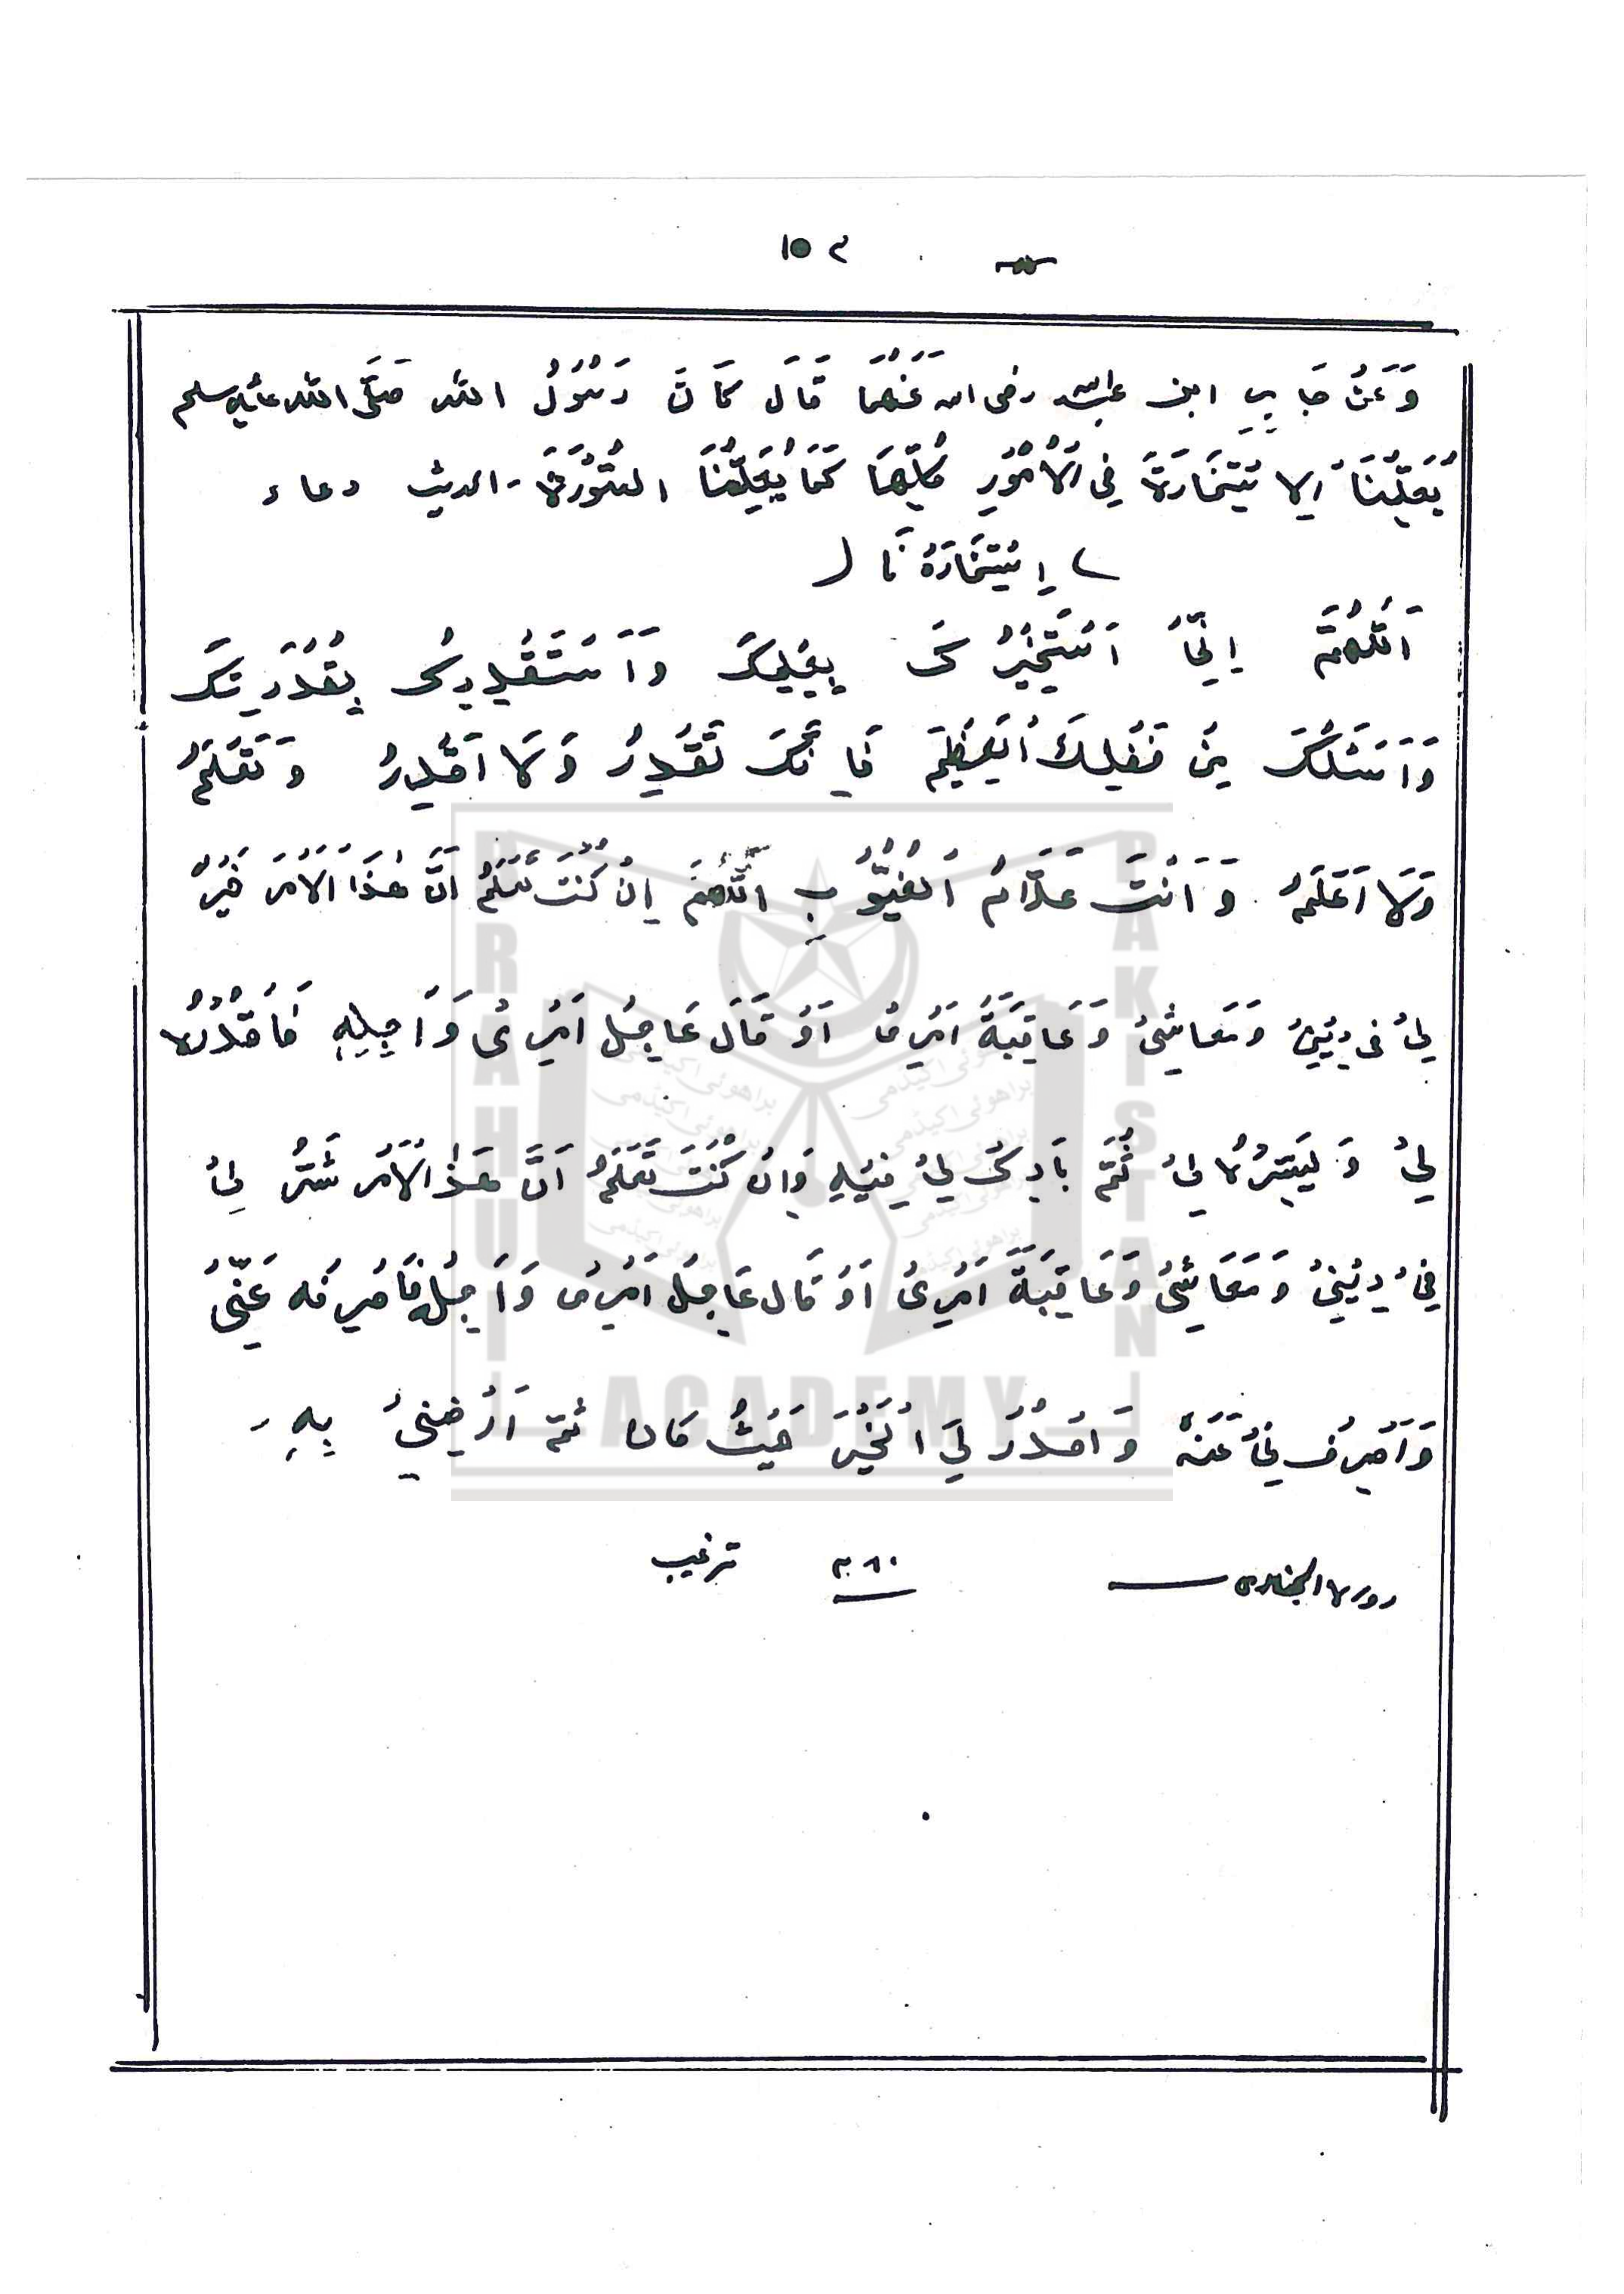 ١٥٢
وَعَنْ جَابِرِ ابن عبداللہ رضی اللہ عَنْهُمَا قَالَ كَانَ رَسُوْلُ اللّٰه صَلَّى اللّٰه عليہ وسلم
يُعَلِّمُنَا الِاسْتِخَارَةَ فِي الْاُمُوْرِ كُلِّهَا كَمَا يُعَلِّمُنَا السُّوْرَةَ - الحديث دعاء
(اِسْتِخَارَهُ نَا)
اَللّٰهُمَّ اِنِّيْ اَسْتَخِيْرُكَ بِعِلْمِكَ وَاَسْتَقْدِرُكَ بِقُدْرَتِكَ
وَاَسْئَلُكَ مِنْ فَضْلِكَ الْعَظِيْمِ فَاِنَّكَ تَقْدِرُ وَلَا اَقْدِرُ وَتَعْلَمُ
وَلَا اَعْلَمُ وَاَنْتَ عَلَّامُ الْغُيُوْبِ اَللّٰهُمَّ اِنْ كُنْتَ تَعْلَمُ اَنَّ هٰذَا الْاَمْرَ خَيْرٌ
لِيْ فِي دِيْنِيْ وَمَعَاشِيْ وَعَاقِبَةَ اَمْرِيْ اَوْ قَالَ عَاجِلُ اَمْرِيْ وَاٰجِلِهِ فَاقْدُرْهُ
لِيْ وَيَسِّرْهُ لِيْ ثُمَّ بَارِكْ لِيْ فِيْهِ وَاِنْ كُنْتَ تَعْلَمُ اَنَّ هٰذَا الْاَمْرَ شَرٌّ لِيْ
فِيْ دِيْنِيْ وَمَعَاشِيْ وَعَاقِبَةَ اَمْرِيْ اَوْ قَالَ عَاجِلُ اَمْرِيْ وَاٰجِلُهٖ فَاصْرِفْه عَنِّيْ
وَاصْرِفْنِيْ عَنْهُ وَاقْدُرْ لِيَ الْخَيْرَ حَيْثُ كَانَ ثُمَّ اَرْضِنِيْ بِهِ -
رواہ البخاری ٢٨٠ ترغيب
BRAHUI
PAKISTAN
ACADEMY